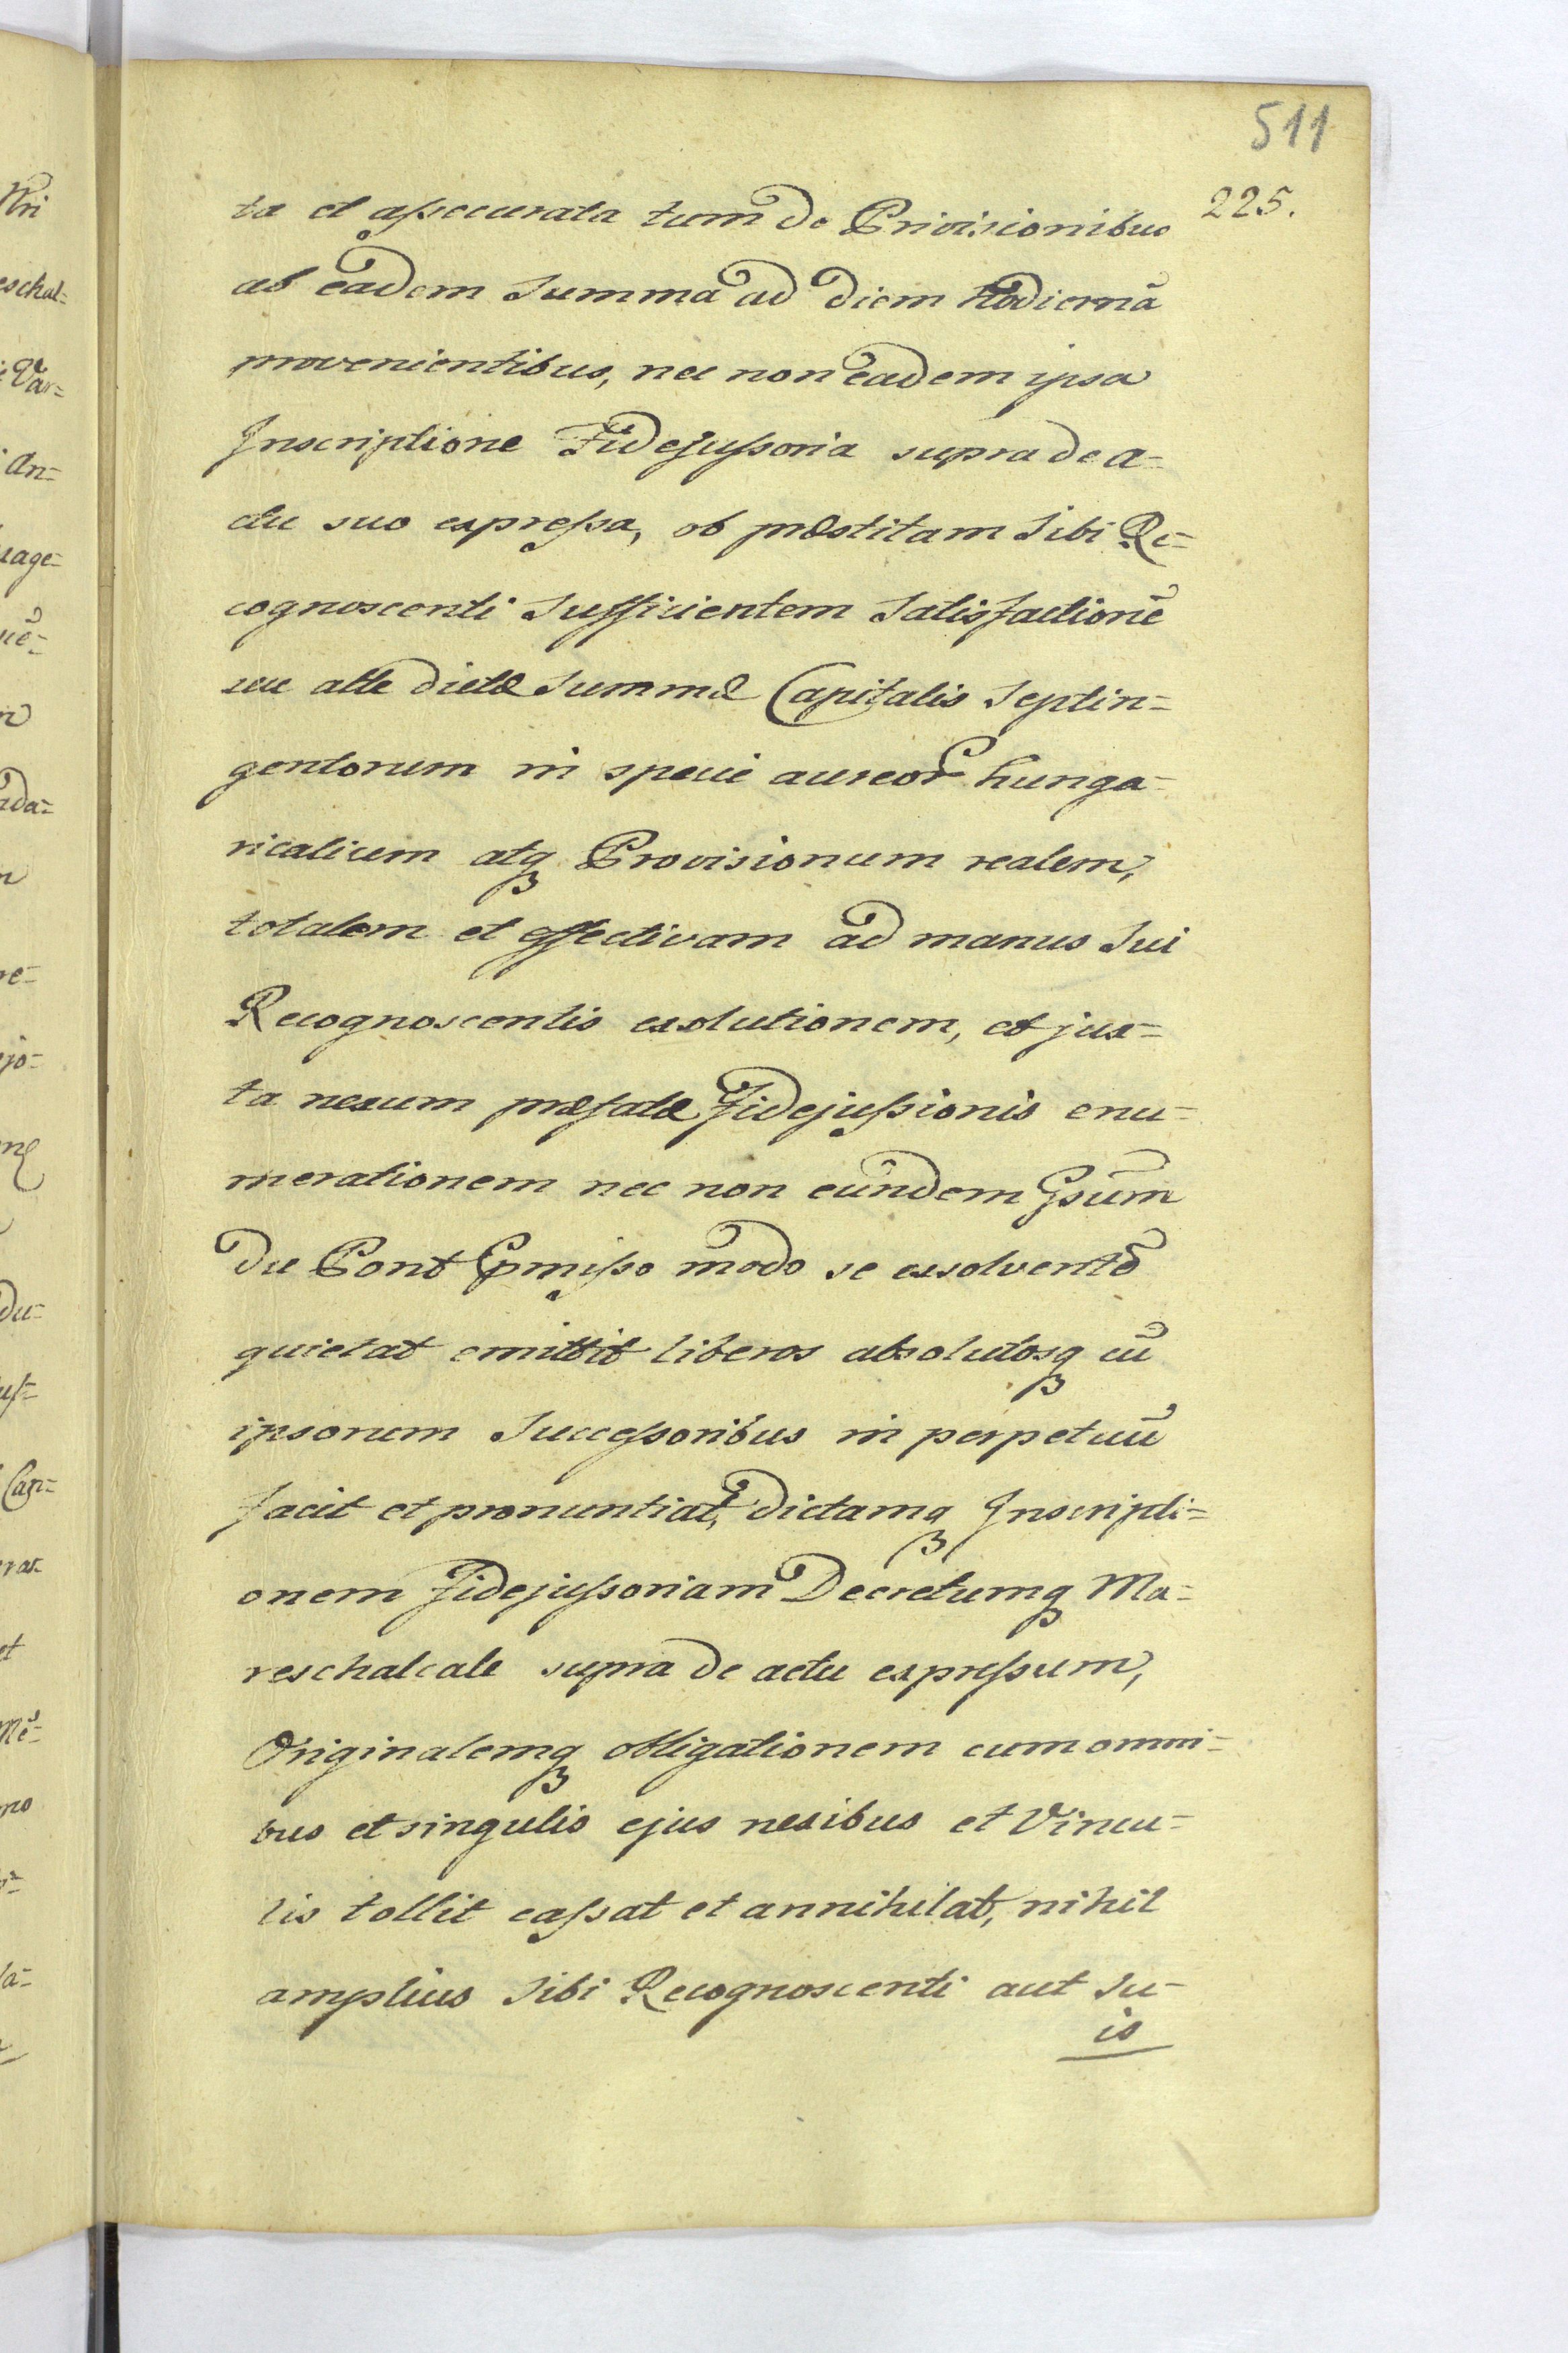 511
225.
ta et assecurata tum de Privisionibus
ab eadem Summa ad diem hodiernā
provenientibus, nec non eadem ipsa
Inscriptione Fidejussoria supra de a=
ctu suo expressa, ob præstitam Sibi Re=
cognoscenti Sufficientem Satisfactionē
seu alte dictæ Summæ Capitalis Septin=
gentorum in specie aureor hunga=
ricalium atq₃ Provisionum realem,
totalem et effectivam ad manus Sui
Recognoscentis exolutionem, et jux=
ta nexum præfatæ Fidejussionis enu=
merationem nec non eundem Gsūm
Du Pont pmisso modo se exolventē
quietat emittit liberos absolutosq₃ cū
ipsorum Successoribus in perpetuū
facit et pronuntiat, dictamq₃ Inscripti=
onem Fidejussoriam Decretumq₃ Ma=
reschalcale supra de actu expressum,
Originalemq₃ obligationem cum omni=
bus et singulis ejus nexibus et Vincu=
lis tollit cassat et annihilat, nihil
amplius Sibi Recognoscenti aut Su=
is